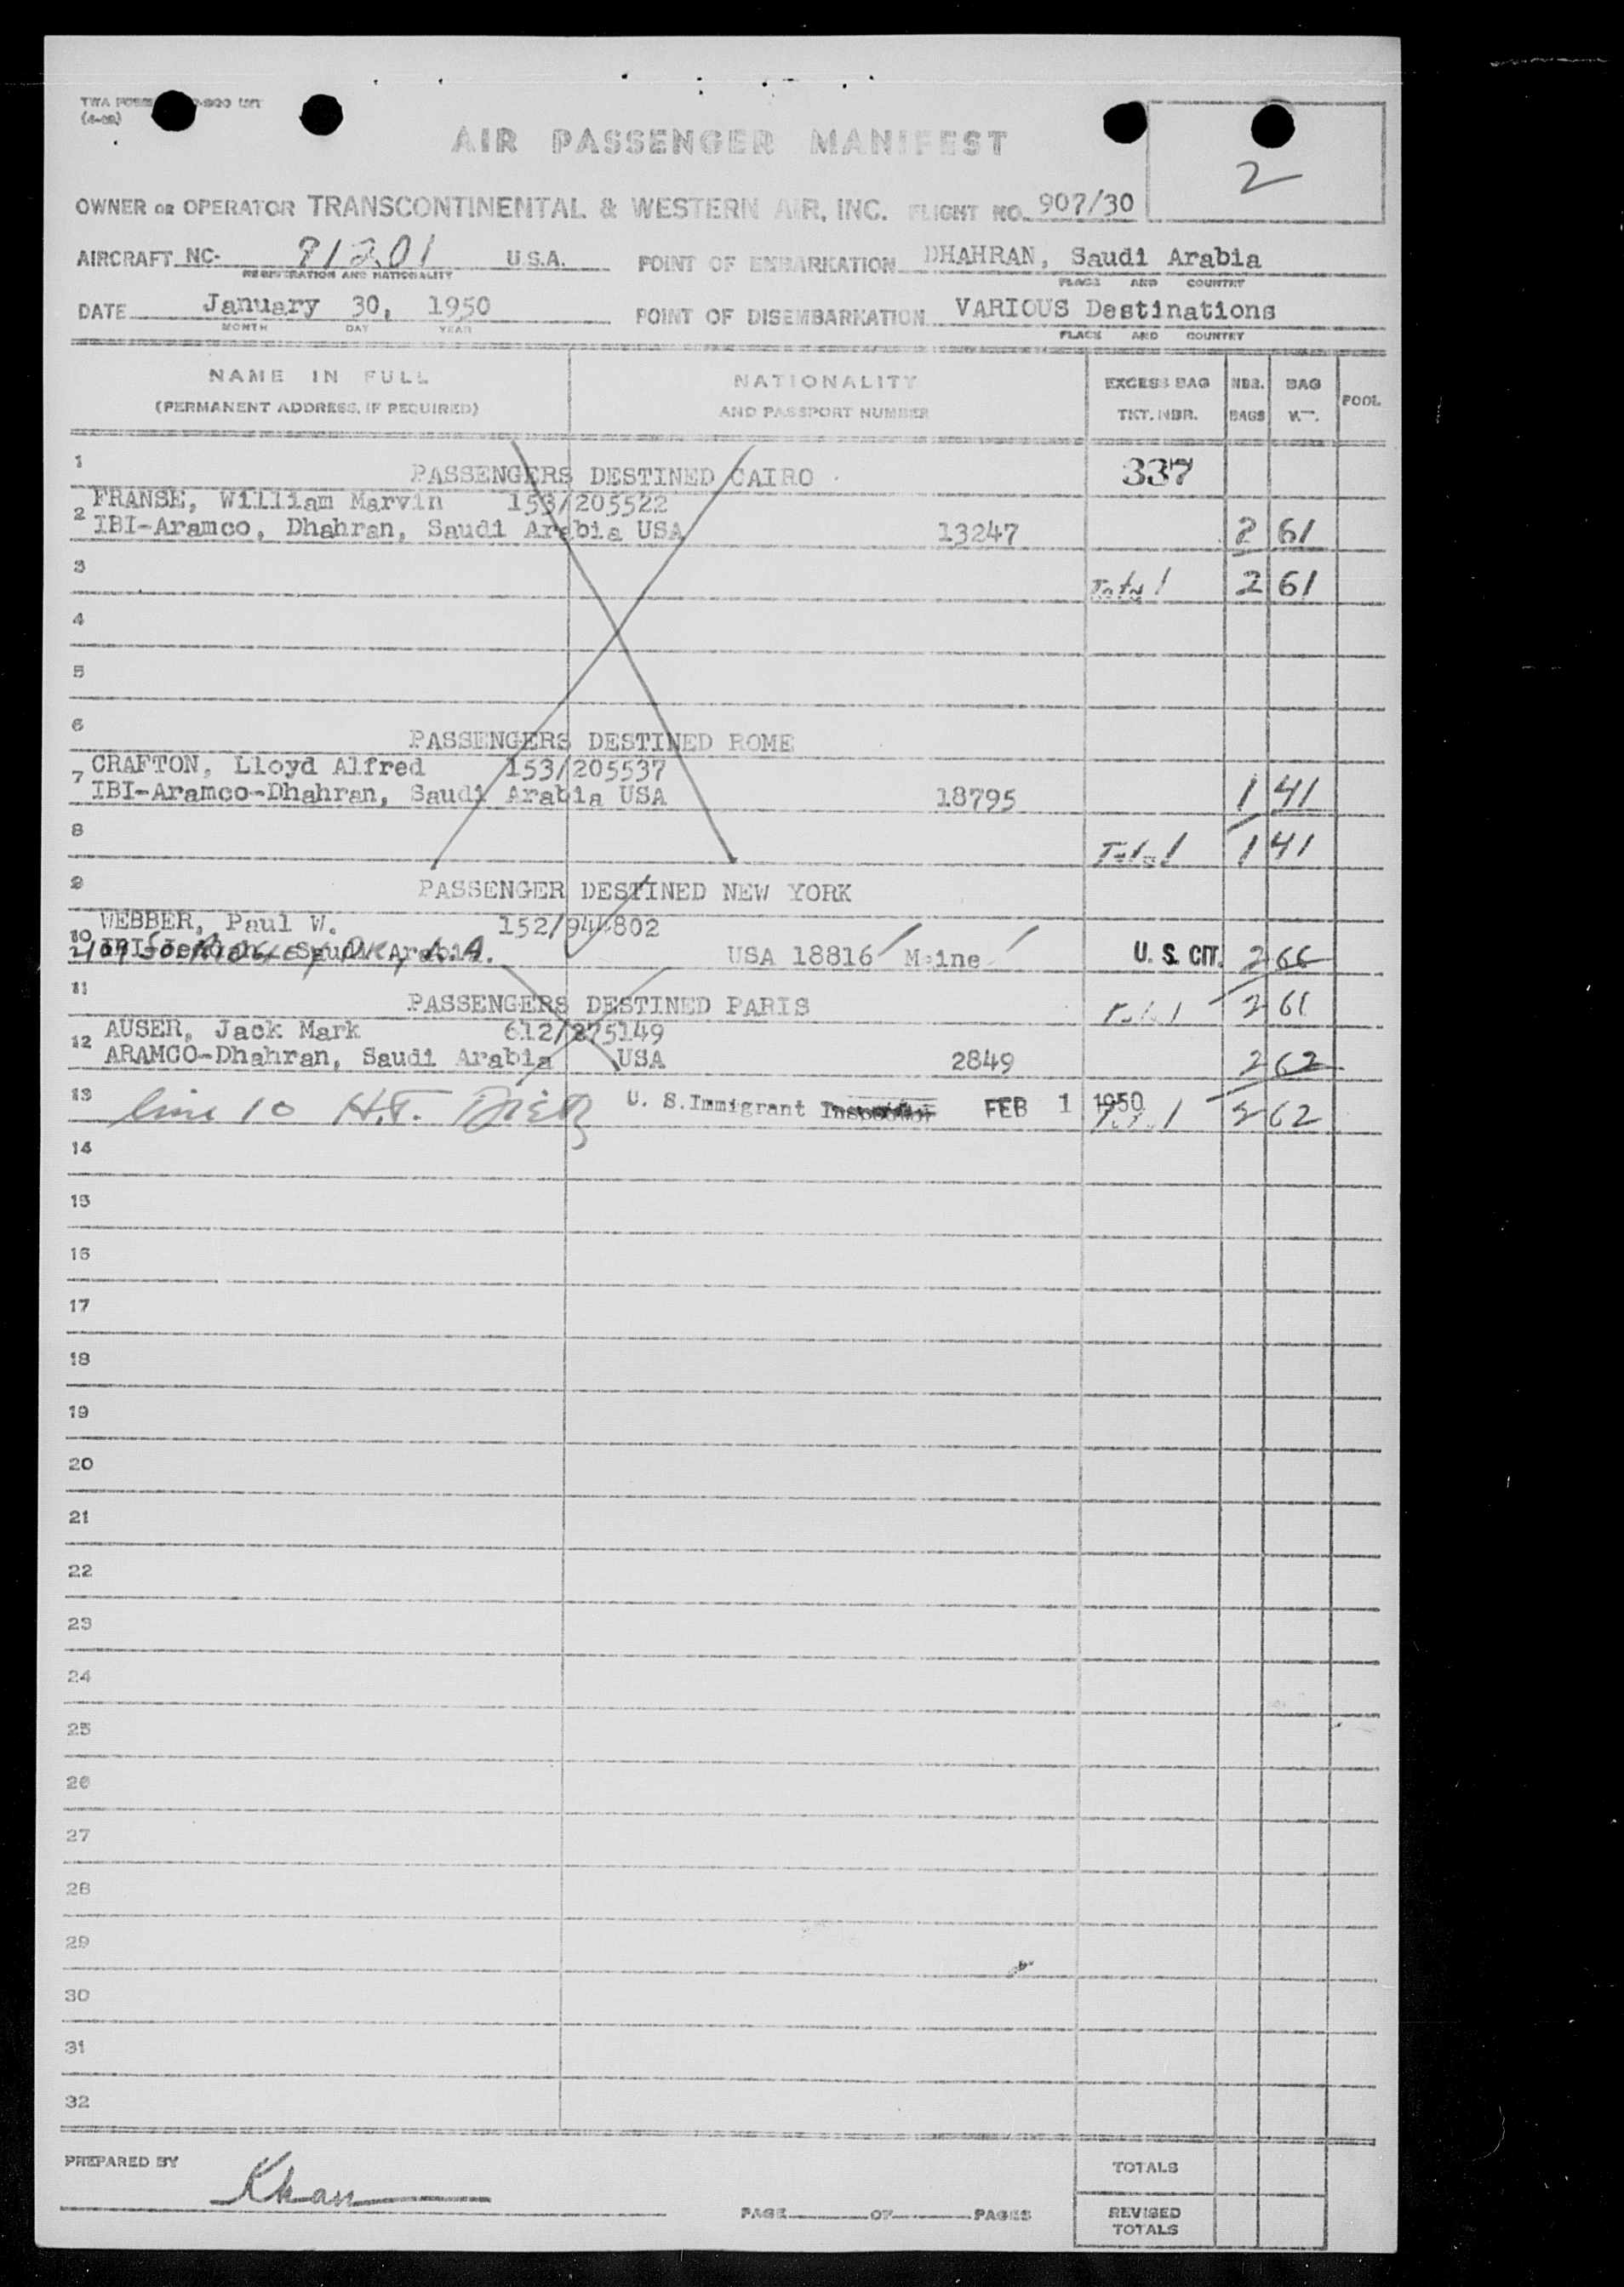 TWA FORM
AIR PASSENGER MANIFEST
2
OWNER OR OPERATOR TRANSCONTINENTAL & WESTERN AIR, INC. FLIGHT NO. 907/30
AIRCRAFT NC- 91201 U.S.A. POINT OF EMBARKATION DHAHRAN, Saudi Arabia
REGISTRATION AND NATIONALITY PLACE AND COUNTRY
DATE January 30, 1950 POINT OF DISEMBARKATION VARIOUS Destinations
MONTH DAY YEAR PLACE AND COUNTRY
NAME IN FULL NATIONALITY EXCESS BAG NBR. BAG POOL
(PERMANENT ADDRESS, IF REQUIRED) AND PASSPORT NUMBER TKT. NBR. BAGS WT.
1 PASSENGERS DESTINED CAIRO 337
FRANSE, William Marvin 153/205522
2 IBI-Aramco, Dhahran, Saudi Arabia USA 13247 2 61
3 Total 2 61
4
5
6 PASSENGERS DESTINED ROME
CRAFTON, Lloyd Alfred 153/205537
7 IBI-Aramco-Dhahran, Saudi Arabia USA 18795 1 41
8 Total 1 41
9 PASSENGER DESTINED NEW YORK
WEBBER, Paul W. 152/944802
10 Saudi Arabia. USA 18816 Maine U. S. CIT. 2 66
11 PASSENGERS DESTINED PARIS Total 2 66
AUSER, Jack Mark 612/275149
12 ARAMCO-Dhahran, Saudi Arabia USA 2849 2 62
13 line 10 H.T. U. S. Immigrant Inspector FEB 1 1950 Total 2 62
14
15
16
17
18
19
20
21
22
23
24
25
26
27
28
29
30
31
32
PREPARED BY Khan TOTALS
PAGE OF PAGES REVISED
TOTALS